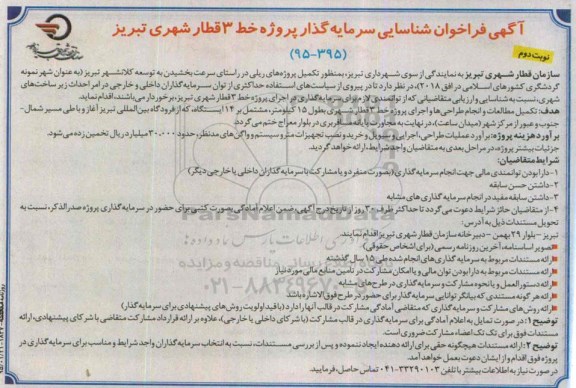 آگهی فراخوان شناسایی سرمایه گذار پروژه خط ۳ قطار شهری تبریز
(۹۵-۳۹۵)
نوبت دوم
سازمان قطار شهری تبریز به نمایندگی از سوی شهرداری تبریز، بمنظور تکمیل پروژه‌های ریلی در راستای سرعت بخشیدن به توسعه کلانشهر تبریز (به عنوان شهر نمونه
گردشگری کشورهای اسلامی در افق ۲۰۱۸)، در نظر دارد تا در پیروی از سیاست‌های استفاده حداکثری از توان سرمایه گذاران داخلی و خارجی در امر احداث زیر ساخت‌های
شهری، نسبت به شناسایی و ارزیابی متقاضیانی که از توانمندی لازم برای سرمایه گذاری در اجرای پروژه خط ۳ قطار شهری تبریز، برخوردار می‌باشند، اقدام نماید.
هدف: تکمیل مطالعات و انجام طراحی‌ها و اجرای پروژه خط ۳ قطار شهری بطول ۱۵ کیلومتر، مشتمل بر ۱۴ ایستگاه، که از فرودگاه بین‌المللی تبریز آغاز و با طی مسیر شمال-
جنوب و عبور از مرکز شهر (میدان ساعت)، در نهایت به مجاورت پایانه مسافربری در بلوار معراج ختم می‌گردد.
برآورد هزینه پروژه: برآورد عملیات طراحی، اجرای سیویل و خرید و نصب تجهیزات مترو سیستم و واگن‌های مدنظر، حدود ۳۰.۰۰۰ میلیارد ریال تخمین زده می‌شود.
جزئیات بیشتر پروژه، در مراحل بعدی به متقاضیان واجد شرایط، ارائه خواهد گردید.
شرایط متقاضیان:
۱- دارا بودن توانمندی مالی جهت انجام سرمایه گذاری (بصورت منفرد و یا مشارکت با سرمایه گذاران داخلی یا خارجی دیگر)
۲- داشتن حسن سابقه
۳- داشتن سابقه مفید در انجام سرمایه گذاری های مشابه
۴- از متقاضیان حائز شرایط دعوت می‌گردد تا حداکثر ظرف ۳۰ روز از تاریخ درج آگهی، ضمن اعلام آمادگی بصورت کتبی برای حضور در سرمایه گذاری پروژه صدرالذکر، نسبت به
تحویل مستندات ذیل به آدرس:
تبریز - بلوار ۲۹ بهمن - دبیرخانه سازمان قطار شهری تبریز اقدام نمایند.
تصویر اساسنامه، آخرین روزنامه رسمی (برای اشخاص حقوقی)
ارائه مستندات مربوط به سرمایه گذاری های انجام شده طی ۱۵ سال گذشته
ارائه مستندات مربوط به دارا بودن توان مالی و یا امکان مشارکت در تأمین منابع مالی مورد نیاز
ارائه دستورالعمل و یا نحوه مشارکت و سرمایه گذاری در طرح‌های مشابه
ارائه هر گونه مستندی که بیانگر توانایی سرمایه گذار برای حضور در طرح فوق الاشاره باشد
ارائه روش‌های مشارکت و سرمایه گذاری که متقاضی آمادگی مشارکت در قالب آنها را دارد (با قید اولویت روش‌های پیشنهادی برای سرمایه گذار)
توضیح ۱: در صورت تمایل به اعلام آمادگی برای سرمایه گذاری در قالب مشارکت (با شرکای داخلی یا خارجی)، علاوه بر ارائه قرارداد مشارکت متقاضی با شرکای پیشنهادی، ارائه
مستندات فوق برای تک تک اعضاء مشارکت ضروری است.
توضیح ۲: ارائه مستندات هیچگونه حقی برای ارائه دهنده ایجاد ننموده و پس از بررسی مستندات، نسبت به انتخاب سرمایه گذاران واجد شرایط و مناسب برای سرمایه گذاری در
پروژه فوق اقدام و از ایشان دعوت بعمل خواهد آمد.
در صورت نیاز به اطلاعات بیشتر با تلفن ۳۳۲۹۰۱۰۳-۰۴۱ تماس حاصل، فرمایید.
ParsNamadData
۰۲۱-۸۸۳۴۹۶۷۰